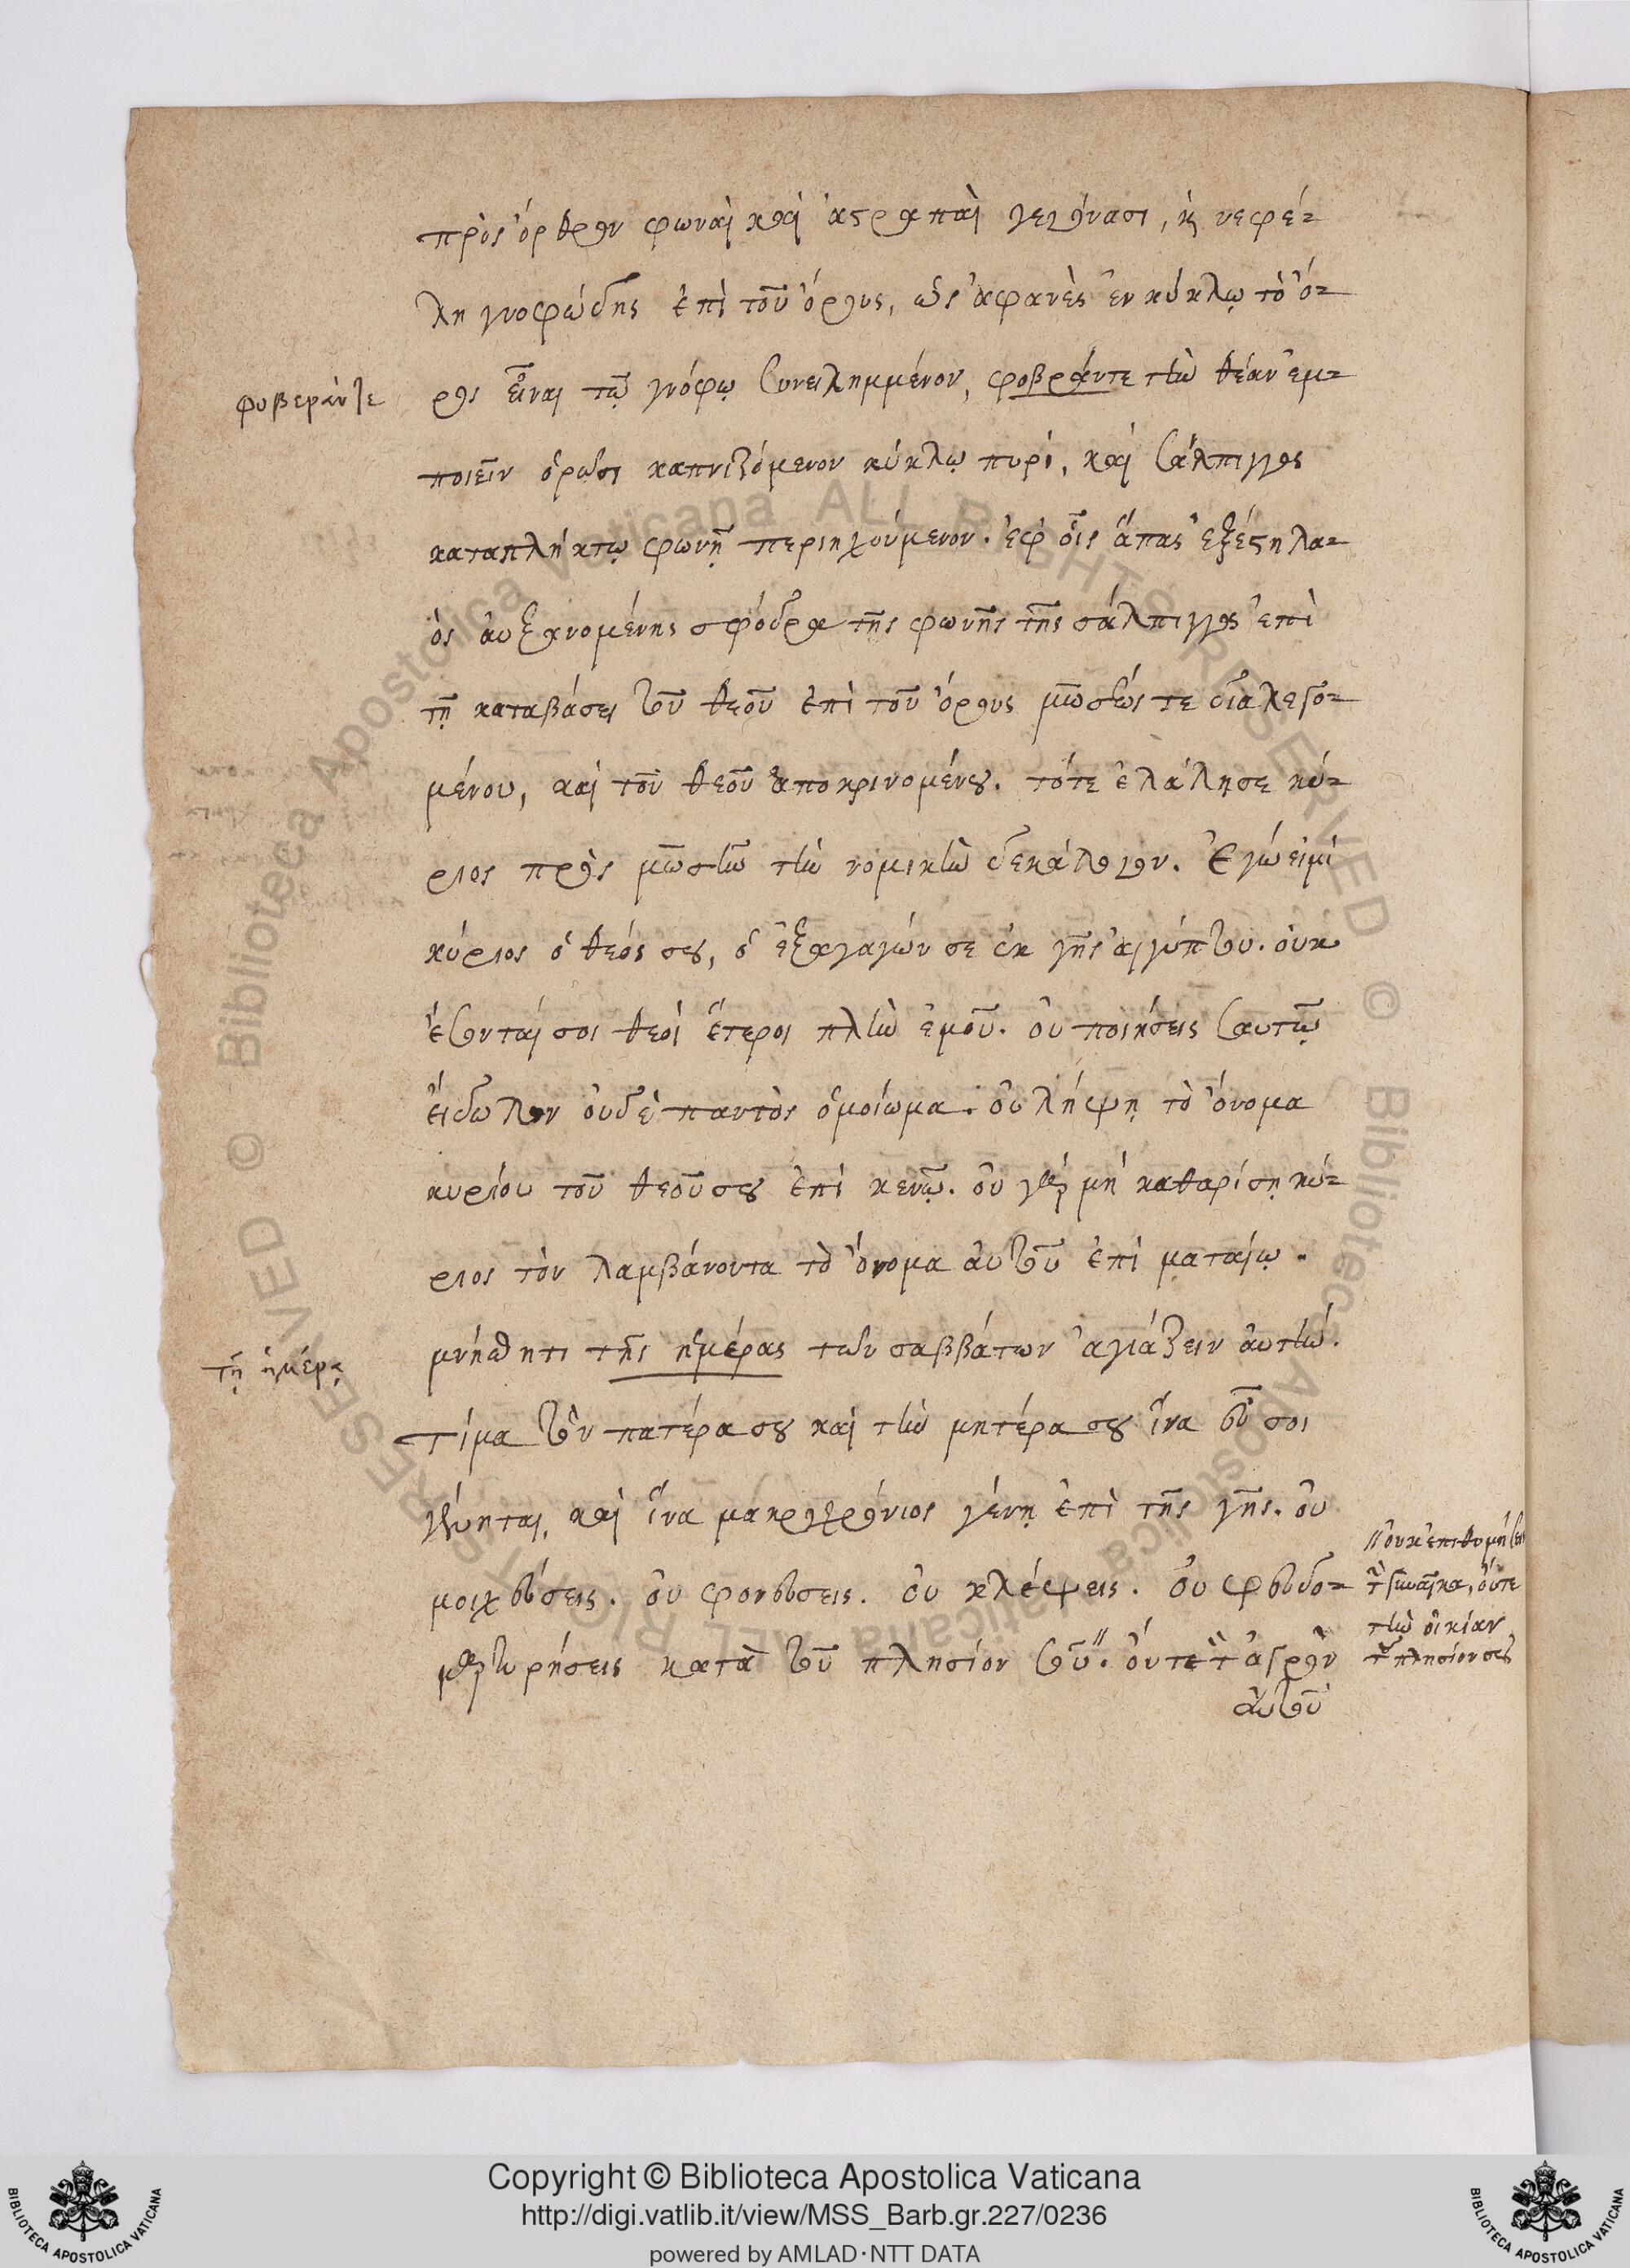 πρὸς ὄρθρον φωναὶ καὶ ἀστραπαὶ γεγόνασι, κ νεφέ-
λη γνοφώδης ἐπὶ τοῦ ὄρους, ὡς ἀφανὲς ἐν κύκλῳ τὸ ὄ-
φοβεράν τε
ρος εἶναι τῷ γνόφῳ συνειλημμένον, φοβράντε τὴν θέαν ἐμ-
ποιεῖν ὁρῶσι καπνιζόμενον κύκλῳ πυρί, καὶ σάλπιγγος
καταπλήκτῳ φωνῇ περιηχούμενον. ἐφ οἷς ἅπας ἐξέστη λα-
ὸς αὐξανομένης σφόδρα τῆς φωνῆς τῆς σάλπιγγος ἐπὶ
τῇ καταβάσει τοῦ θεοῦ ἐπὶ τοῦ ὄρους μωσέως τε διαλεγο-
μένου, καὶ τοῦ θεοῦ ἀποκρινομένου. τότε ἐλάλησε κύ-
ριος πρὸς μωσῆν τὴν νομικὴν δεκάλογον. Ἐγώ εἰμὶ
κύριος ὁ θεός σου, ὁ ἐξαγαγών σε ἐκ γῆς αἰγύπτου. οὐκ
ἔσονταί σοι θεοὶ ἕτεροι πλὴν ἐμοῦ. οὐ ποιήσεις σαυτῷ
εἴδωλον οὐδὲ παντὸς ὁμοίωμα. οὐ λήψῃ τὸ ὄνομα
κυρίου τοῦ θεοῦ σου ἐπὶ κενῷ. οὐ γὰρ μὴ καθαρίσῃ κύ-
ριος τὸν λαμβάνοντα τὸ ὄνομα αὐτοῦ ἐπὶ ματαίῳ.
τῇ ἡμέρᾳ
μνήσθητι τῆς ἡμέρας τῶν σαββάτων ἁγιάζειν αὐτήν.
τίμα τὸν πατέρα σου καὶ τὴν μητέρα σου ἵνα εὖ σοι
γένηται, καὶ ἵνα μακροχρόνιος γένῃ ἐπὶ τῆς γῆς. οὐ
μοιχεύσεις. οὐ φονεύσεις. οὐ κλέψεις. οὐ ψευδο-
μαρτυρήσεις κατὰ τοῦ πλησίον σοῦ.// οὔτε τ ἀγρὸν
αὐτοῦ
// οὐκ ἐπιθυμήσεις
τ γυναῖκα, οὔτε
τὴν οἰκίαν
τοῦ πλησίον σου
Copyright © Biblioteca Apostolica Vaticana
http://digi.vatlib.it/view/MSS_Barb.gr.227/0236
powered by AMLAD·NTT DATA
BIBLIOTECA APOSTOLICA VATICANA
BIBLIOTECA APOSTOLICA VATICANA
Biblioteca Apostolica Vaticana ALL RIGHTS RESERVED © Biblioteca Apostolica Vaticana ALL RIGHTS RESERVED ©